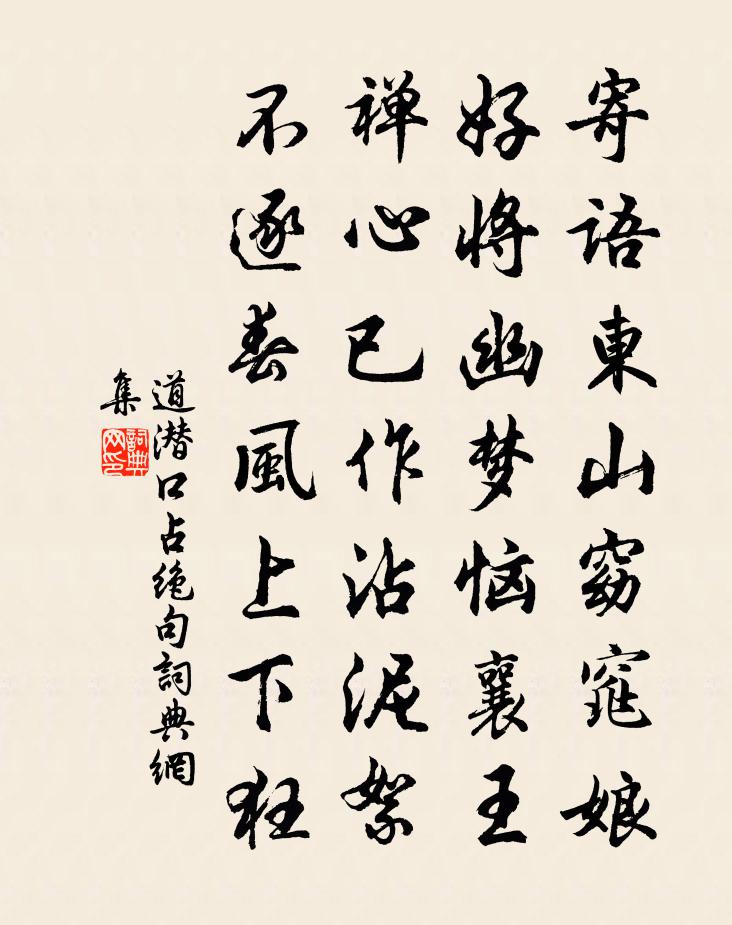 寄語東山窈窕娘
好將幽梦恼襄王
禅心已作沾泥絮
不逐春風上下狂
道潜口占绝句詞典網
集
詞典
网印